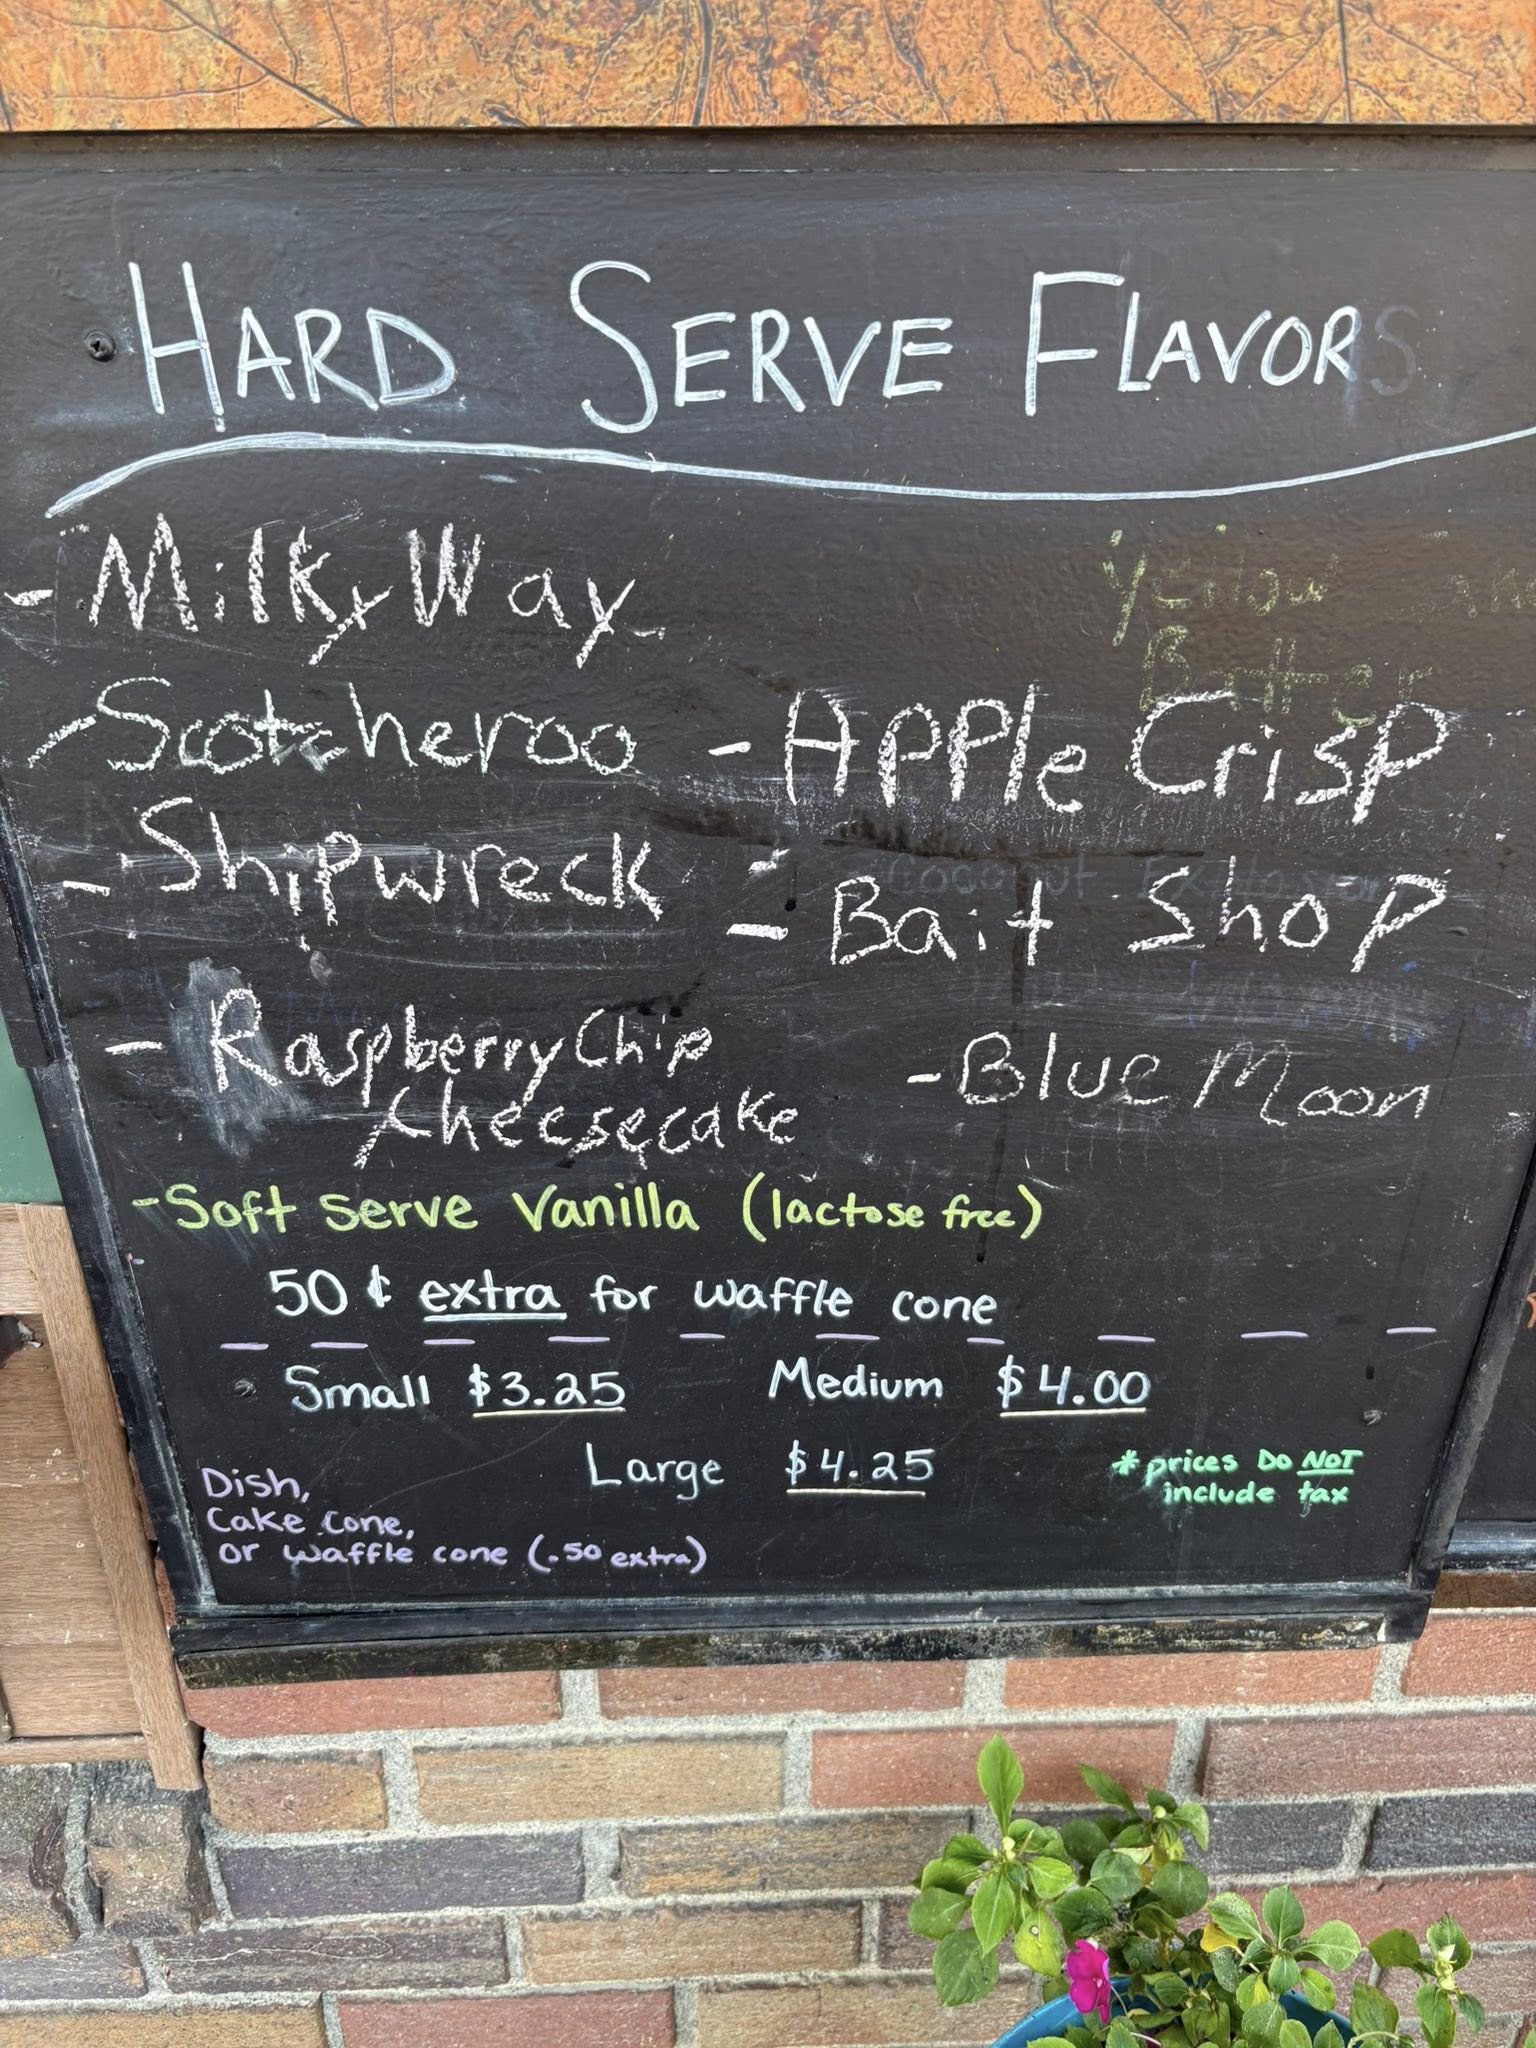 HARD SERVE FLAVORS
- Milky Way
Yellow
Batter
- Scotcheroo
- Apple Crisp
- Shipwreck
Coconut Explosion
- Bait Shop
- Raspberry Chip
Cheesecake
- Blue Moon
- Soft Serve Vanilla (lactose free)
50¢ extra for waffle cone
Small $3.25
Medium $4.00
Large $4.25
* prices DO NOT
include tax
Dish,
Cake cone,
or waffle cone (.50 extra)